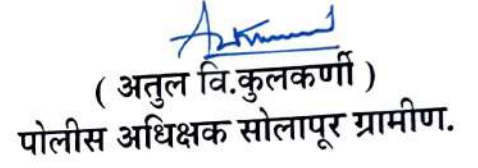 ( अतुल वि.कुलकर्णी )
पोलीस अधिक्षक सोलापूर ग्रामीण.